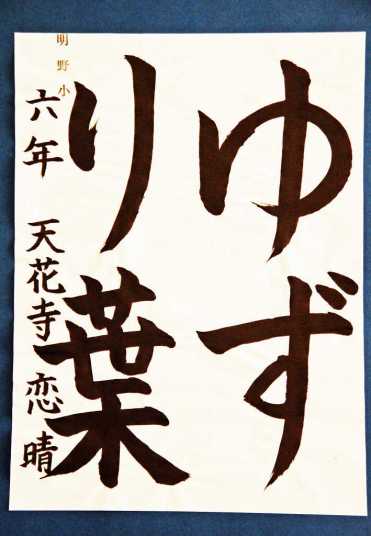 ゆず
り葉
明野小
六年 天花寺恋晴